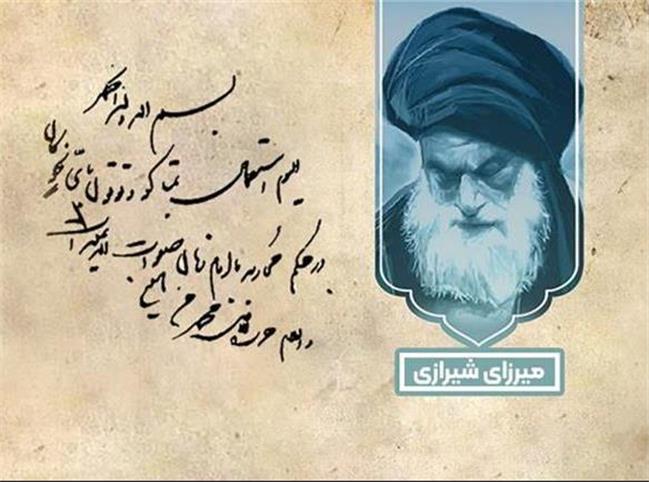 بسم الله الرحمن الرحیم
الیوم استعمال تنباکو و توتون بأی نحو کان
در حکم محاربه با امام زمان صلوات الله علیه است
محمد حسن
میرزای شیرازی